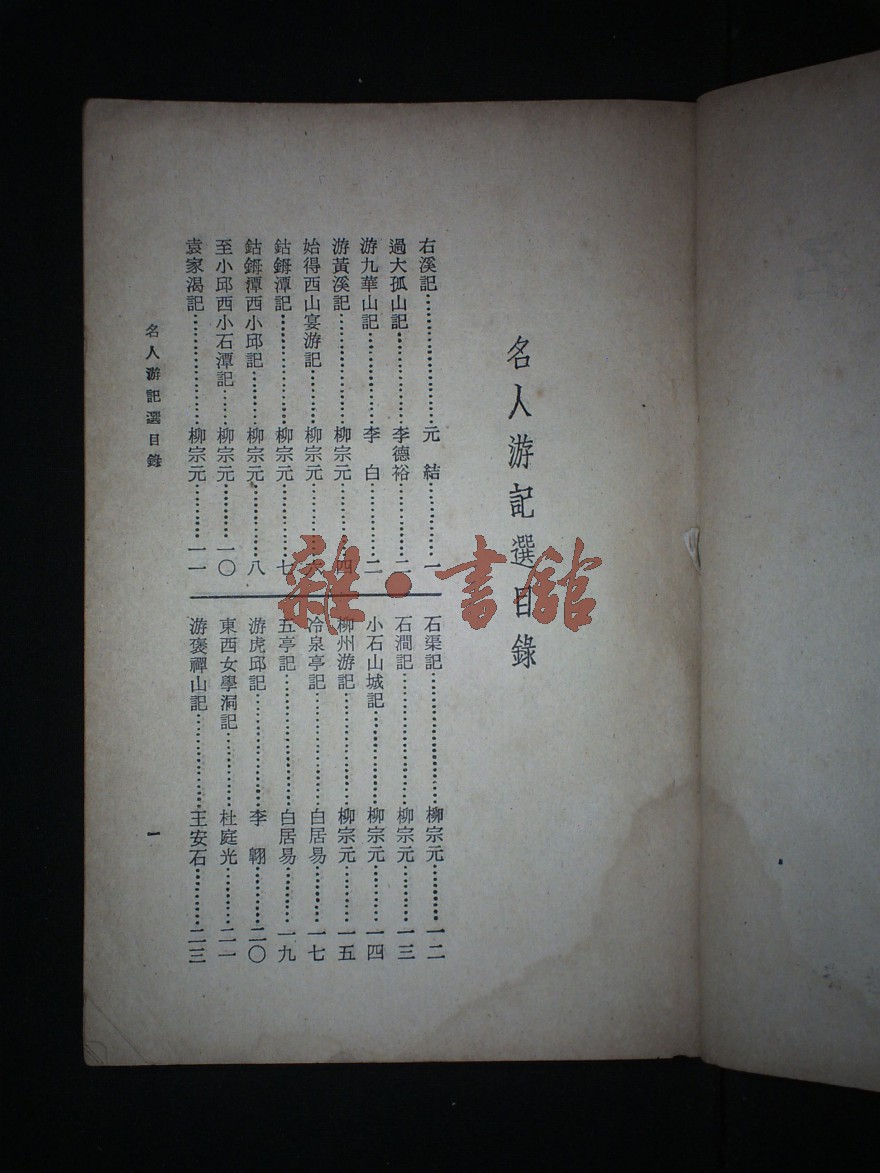 名人游記選目錄
右溪記 元 結 一
過大孤山記 李德裕 二
游九華山記 李 白 二
游黃溪記 柳宗元 四
始得西山宴游記 柳宗元 六
鈷鉧潭記 柳宗元 七
鈷鉧潭西小邱記 柳宗元 八
至小邱西小石潭記 柳宗元 一〇
袁家渴記 柳宗元 一一
石渠記 柳宗元 一二
石澗記 柳宗元 一三
小石山城記 柳宗元 一四
柳州游記 柳宗元 一五
冷泉亭記 白居易 一七
五亭記 白居易 一九
游虎邱記 李 翺 二〇
東西女學洞記 杜庭光 二一
游褒禪山記 王安石 二三
名人游記選目錄
一
雜·書館